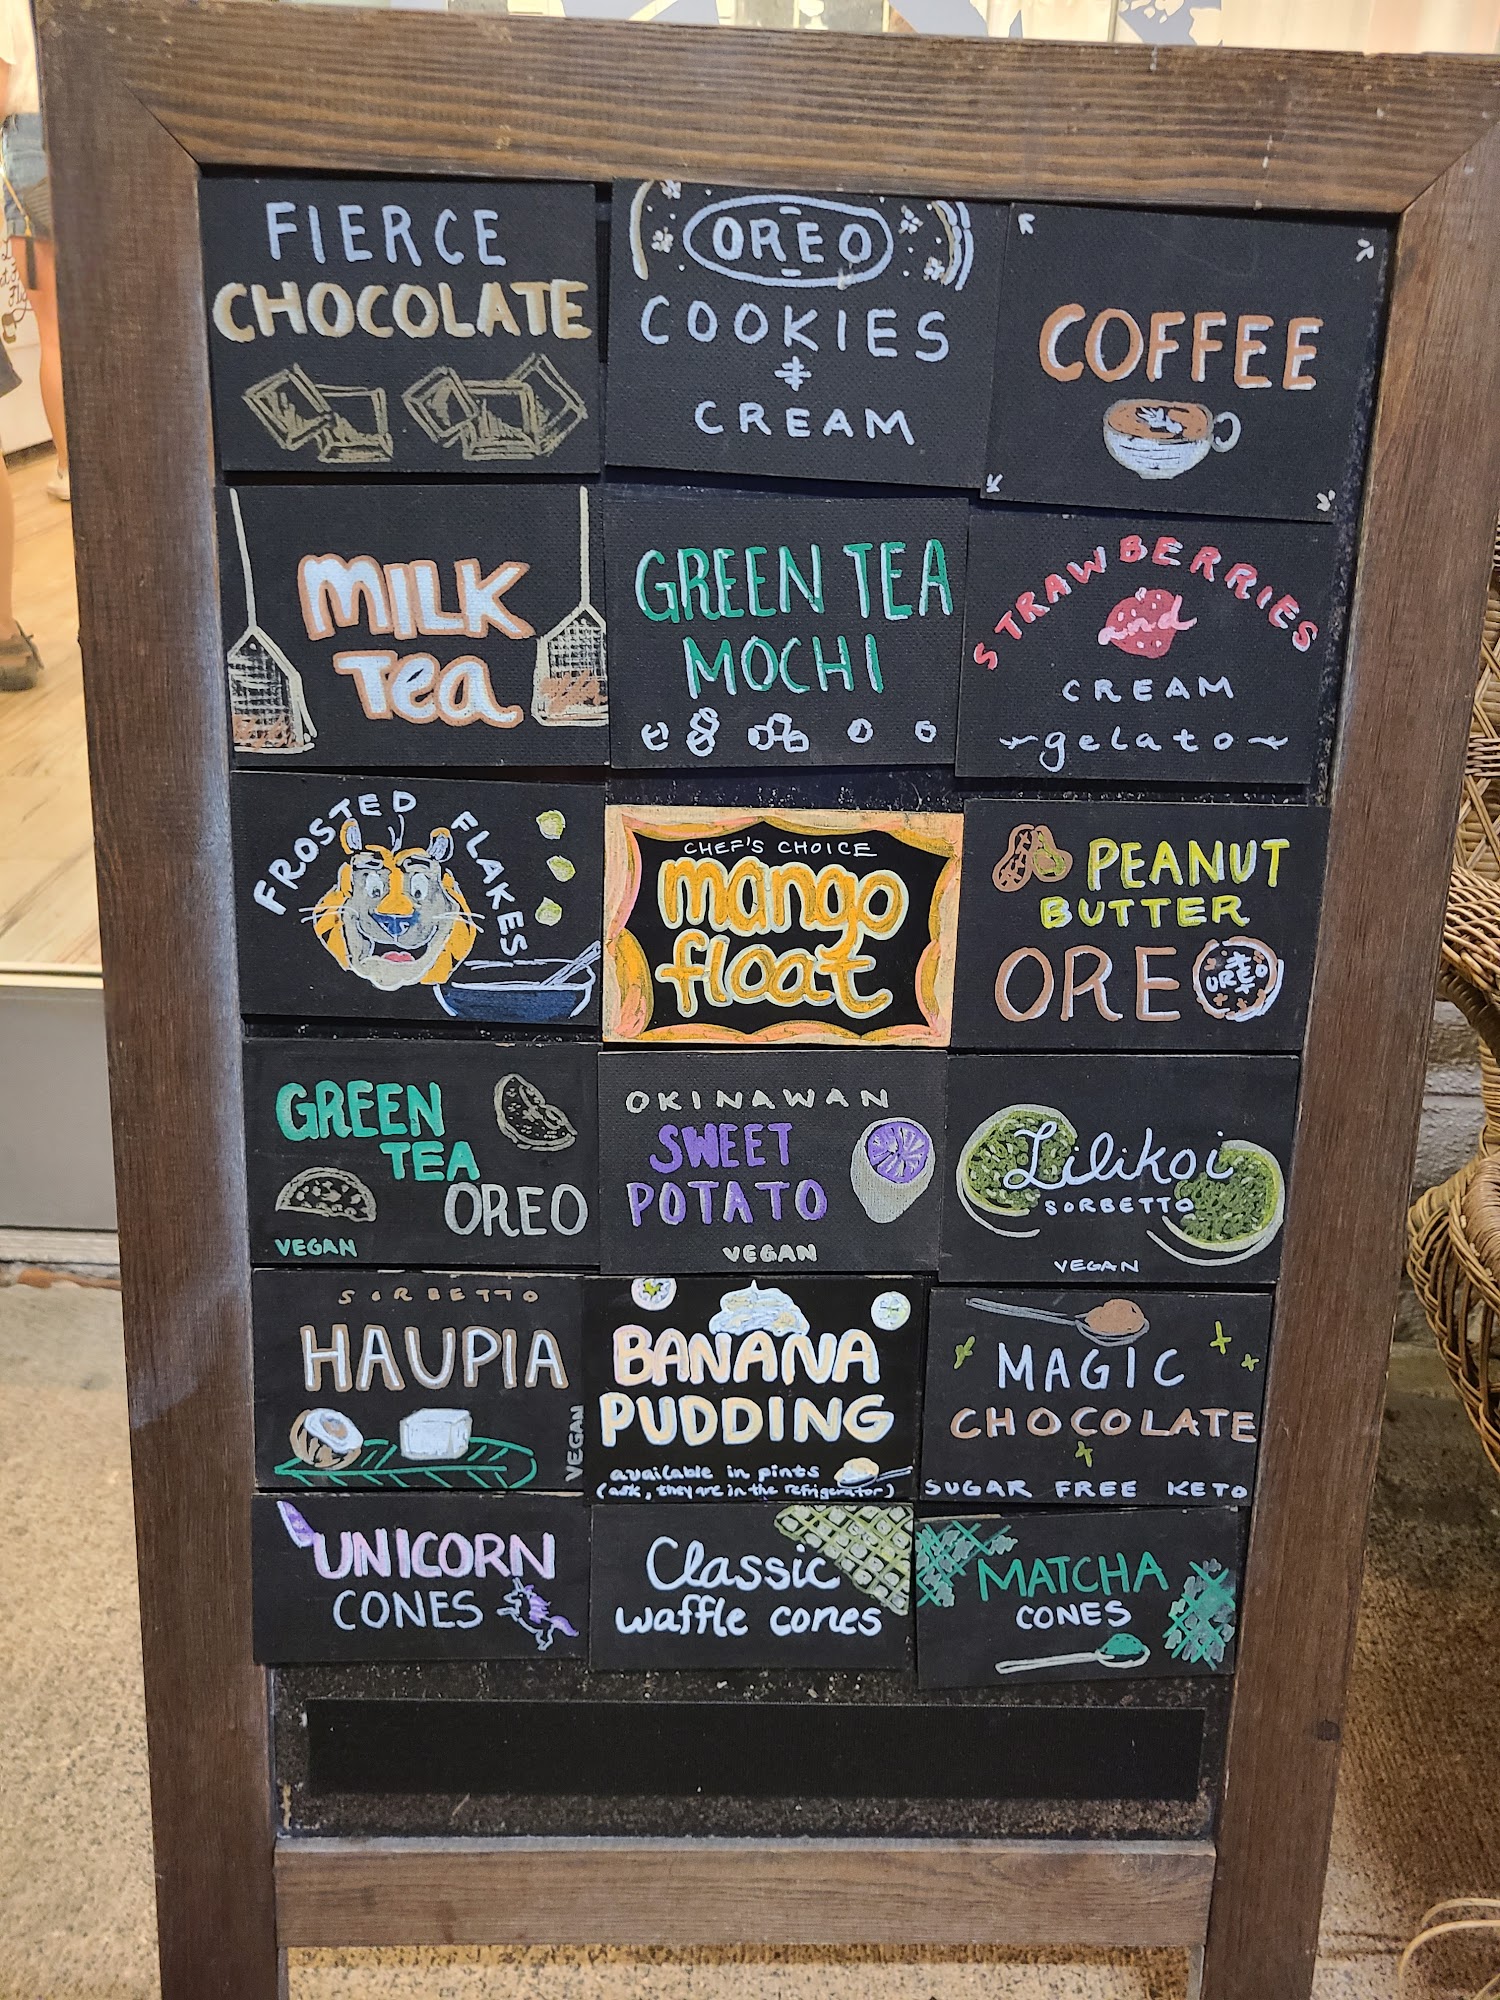 FIERCE
CHOCOLATE
OREO
COOKIES
&
CREAM
COFFEE
MILK
Tea
GREEN TEA
MOCHI
STRAWBERRIES
and
CREAM
gelato
FROSTED FLAKES
CHEF'S CHOICE
mango
float
PEANUT
BUTTER
OREO
OREO
GREEN
TEA
OREO
VEGAN
OKINAWAN
SWEET
POTATO
VEGAN
Lilikoi
SORBETTO
VEGAN
SORBETTO
HAUPIA
VEGAN
BANANA
PUDDING
available in pints
(ask, they are in the refrigerator)
MAGIC
CHOCOLATE
SUGAR FREE KETO
UNICORN
CONES
Classic
waffle cones
MATCHA
CONES